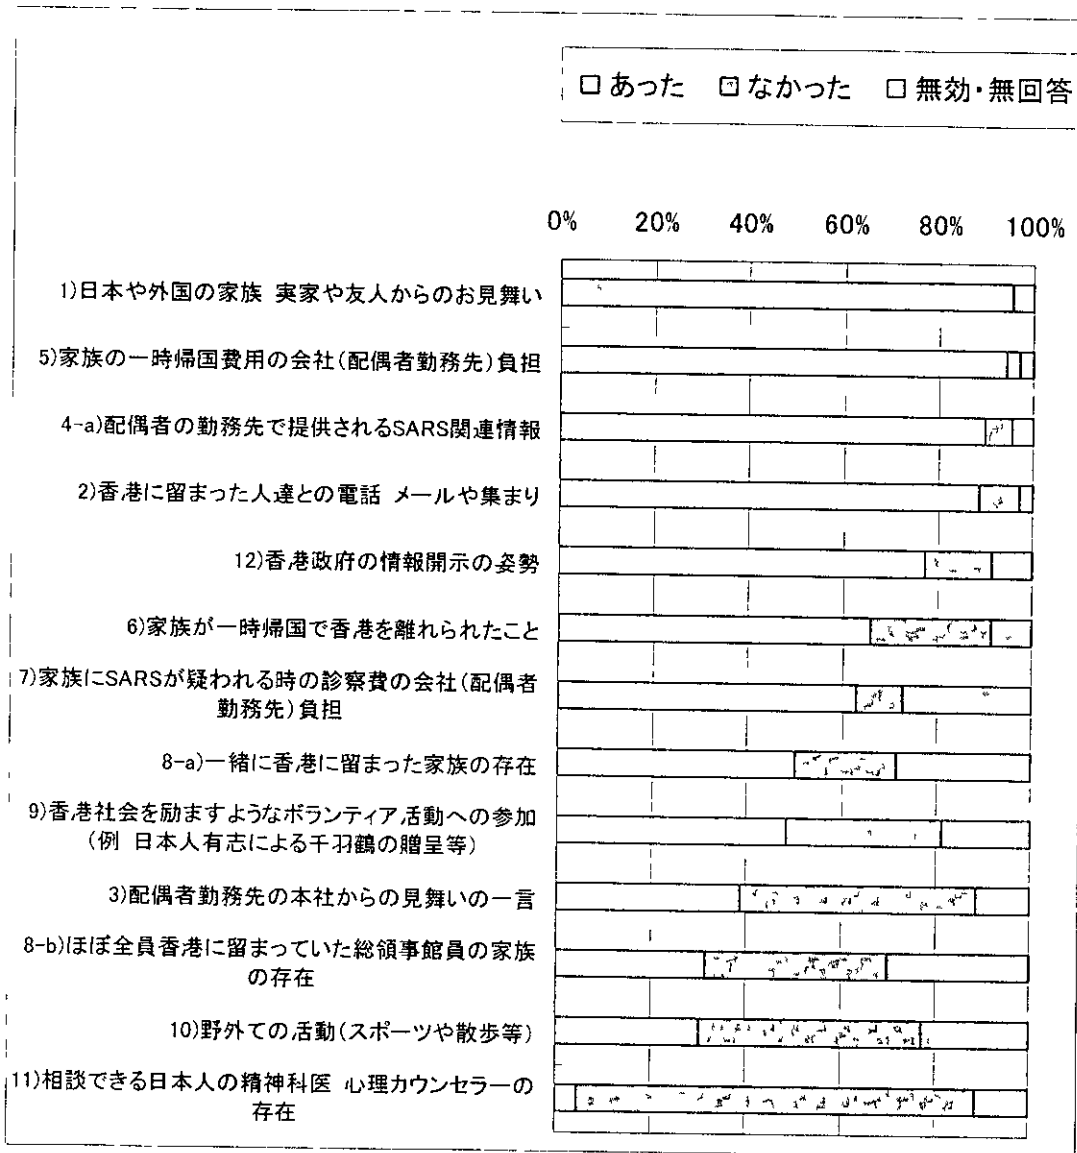 □あった □なかった □無効・無回答
0% 20% 40% 60% 80% 100%
1)日本や外国の家族 実家や友人からのお見舞い
5)家族の一時帰国費用の会社(配偶者勤務先)負担
4-a)配偶者の勤務先で提供されるSARS関連情報
2)香港に留まった人達との電話 メールや集まり
12)香港政府の情報開示の姿勢
6)家族が一時帰国で香港を離れられたこと
7)家族にSARSが疑われる時の診察費の会社(配偶者
勤務先)負担
8-a)一緒に香港に留まった家族の存在
9)香港社会を励ますようなボランティア活動への参加
(例 日本人有志による千羽鶴の贈呈等)
3)配偶者勤務先の本社からの見舞いの一言
8-b)ほぼ全員香港に留まっていた総領事館員の家族
の存在
10)野外ての活動(スポーツや散歩等)
11)相談できる日本人の精神科医 心理カウンセラーの
存在